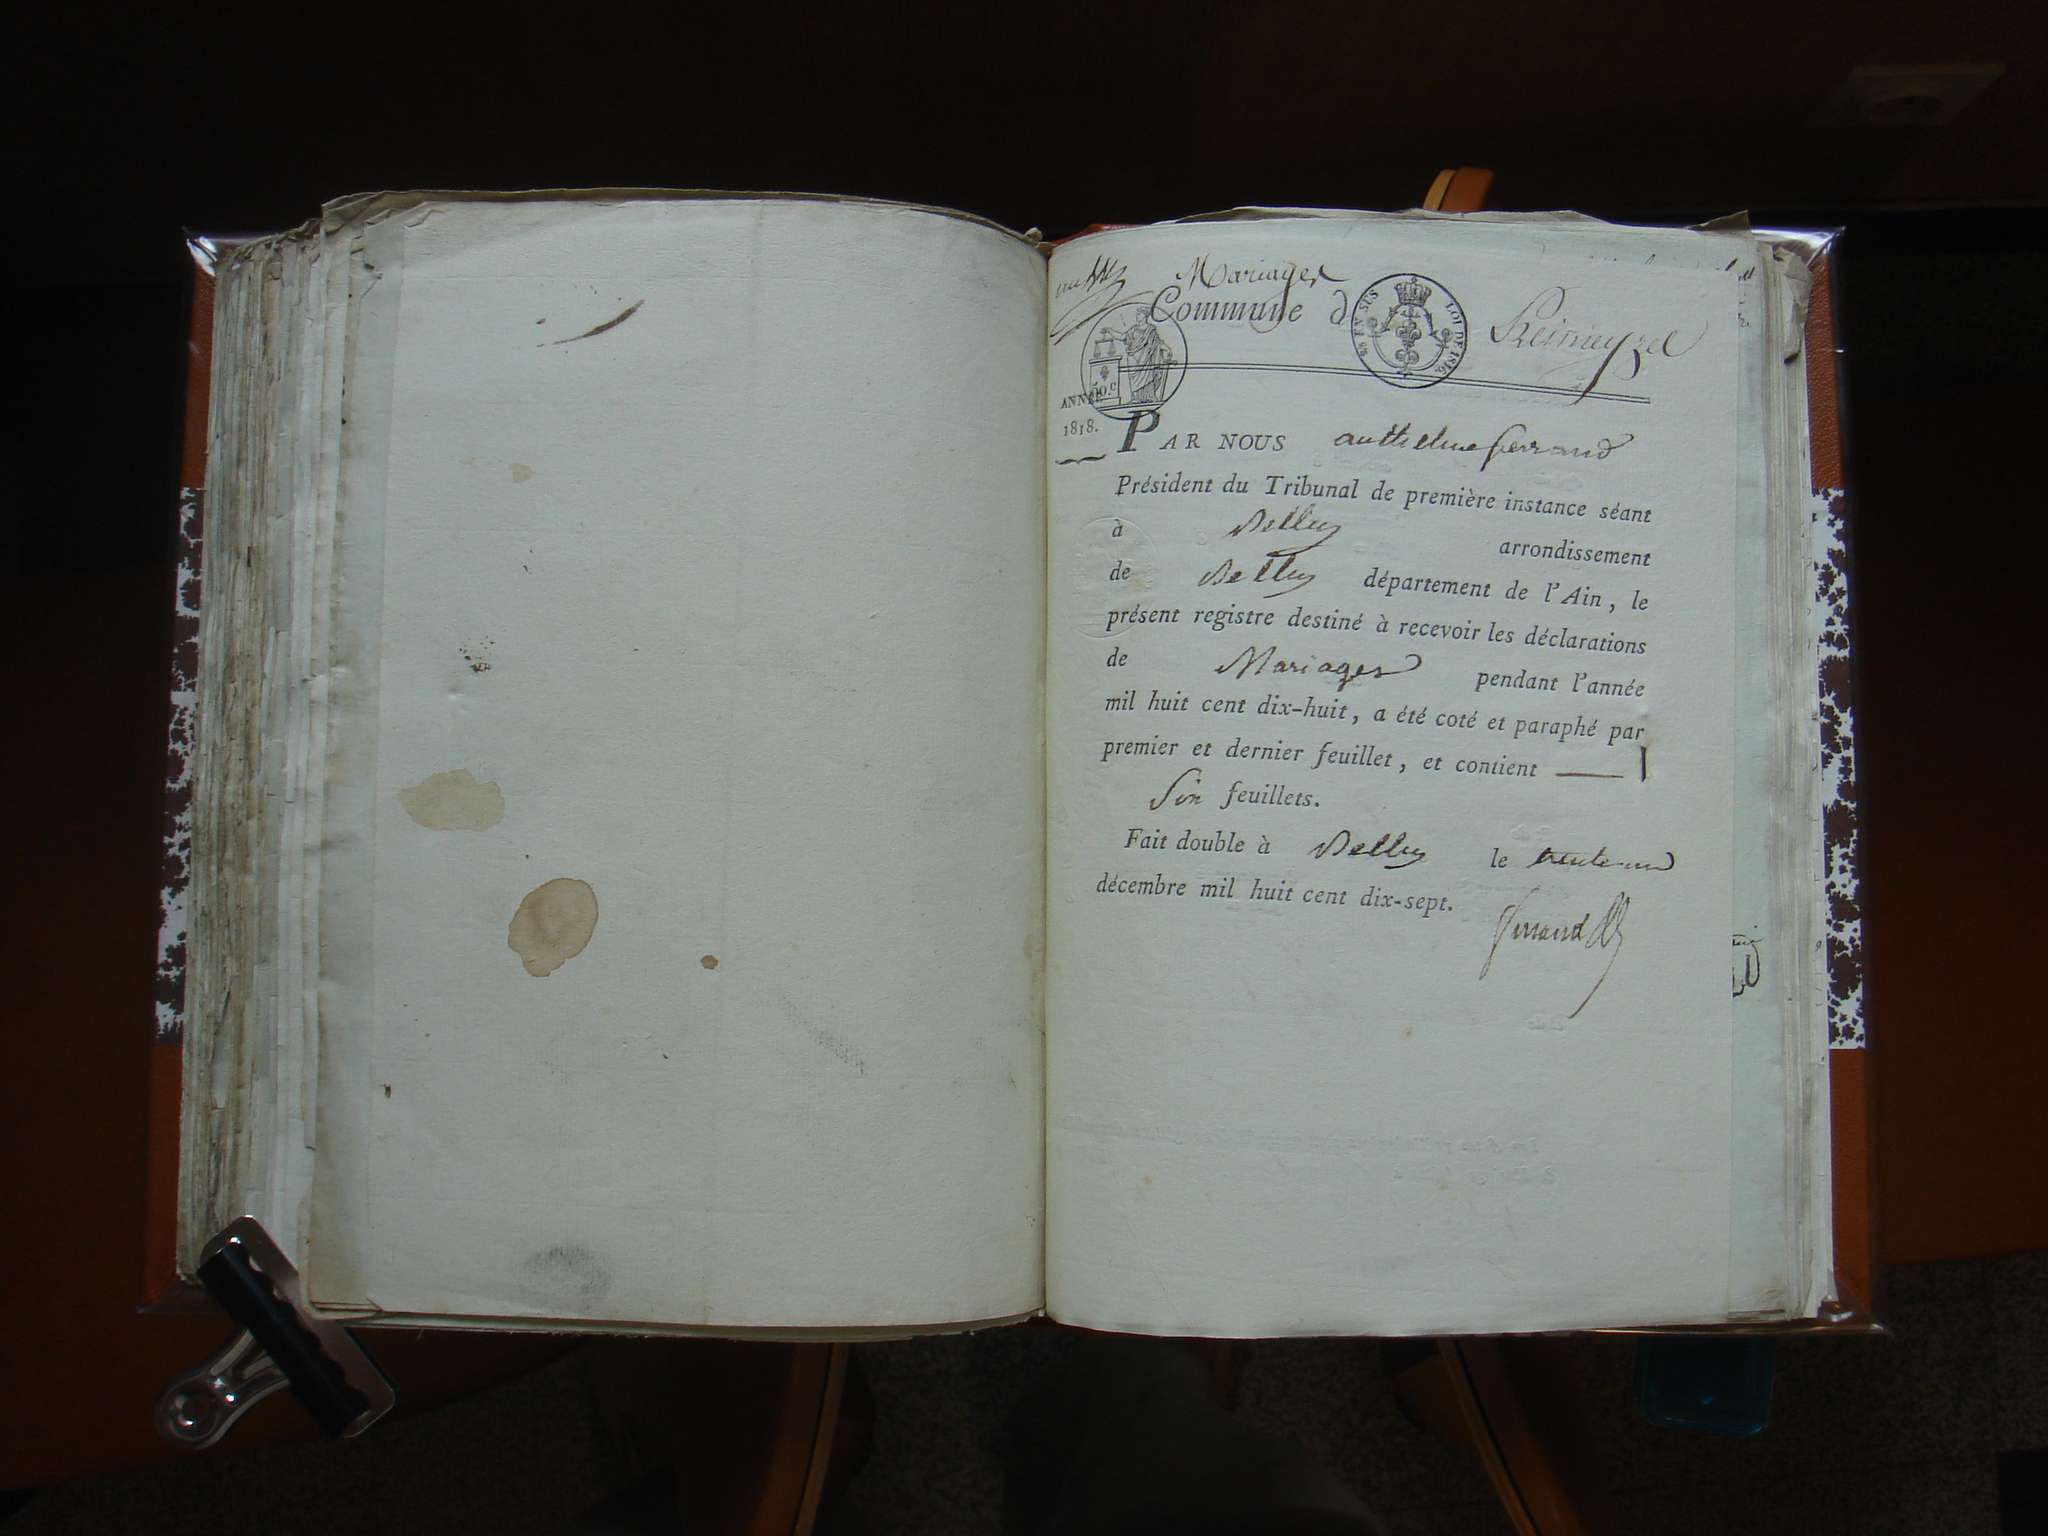 Mariages
Commune d Premeyzel
28 EN SUS LOI DE 1816.
50.c
ANNÉE
1818.
PAR NOUS anthelme ferrand
Président du Tribunal de première instance séant
à Belley arrondissement
de Belley département de l'Ain, le
présent registre destiné à recevoir les déclarations
de Mariages pendant l'année
mil huit cent dix-huit, a été coté et paraphé par
premier et dernier feuillet, et contient
Six feuillets.
Fait double à Belley le trente-un
décembre mil huit cent dix-sept.
ferrand